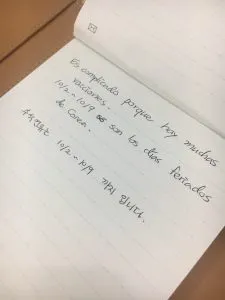 Es complicado porque hay muchas
vacaciones.
10/2 ~ 10/9 son los días feriados
de Corea.
추석연휴는 10/2 ~ 10/9 까지 입니다.